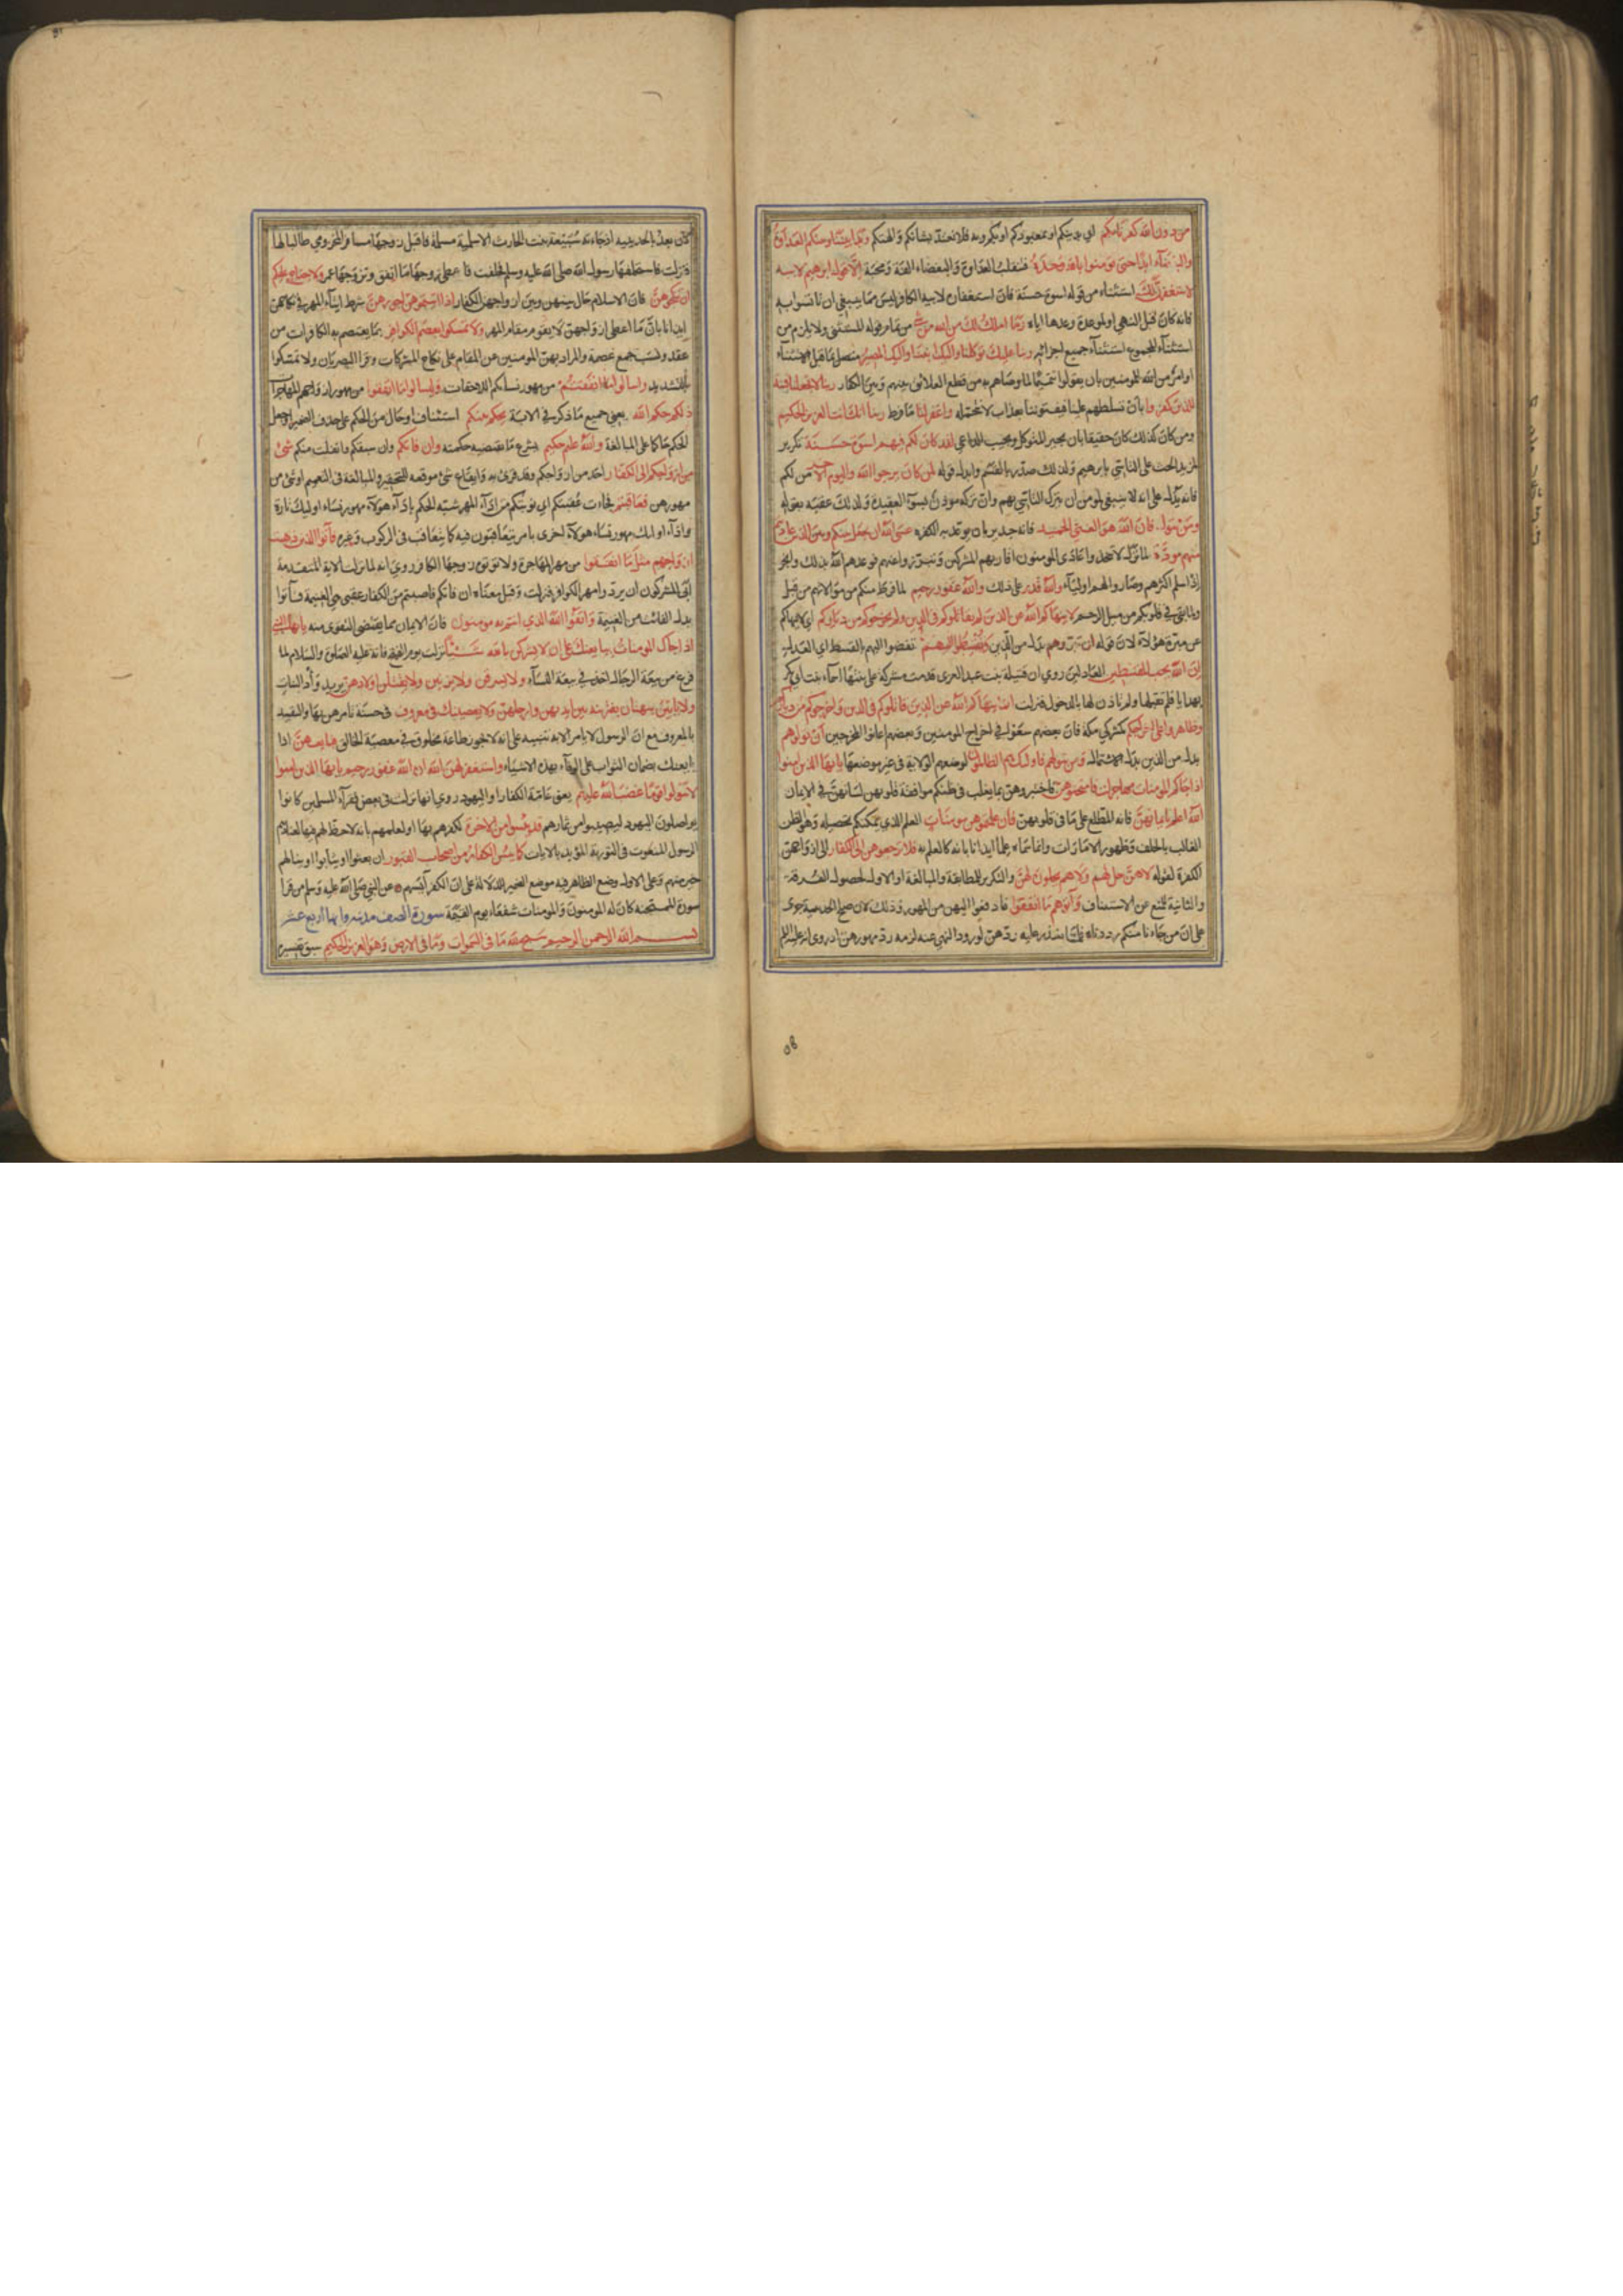 من دون الله كفرنا بكم اي بدينكم او بمعبودكم او بكم وبه فلا نعتد بشانكم والهتكم وبدا بيننا وبينكم العداوة
والبغضاء ابدا حتى تومنوا بالله وحده فتنقلب العداوة والبغضاء الفة ومحبة الا قول ابرهيم لابيه
لاستغفرن لك استثناء من قوله اسوة حسنة فان استغفاره لابيه الكافر ليس مما ينبغي ان تاتسوا به
فانه كان قبل النهي او لموعدة وعدها اياه وما املك لك من الله من شئ من تمام قوله المستثنى ولا يلزم من
استثناء المجموع استثناء جميع اجزائه ربنا عليك توكلنا واليك انبنا واليك المصير متصل بما قبل الاستثناء
او امر من الله للمومنين بان يقولوا تتميما لما وصاهم به من قطع العلائق بينهم وبين الكفار ربنا لا تجعلنا فتنة
للذين كفروا بان تسلطهم علينا فيفتنوننا بعذاب لا نحتمله واغفر لنا ما فرط ربنا انك انت العزيز الحكيم
ومن كان كذلك كان حقيقا بان يجير المتوكل ويجيب الداعي لقد كان لكم فيهم اسوة حسنة تكرير
لمزيد الحث على التاسي بابرهيم ولذلك صدر بالقسم وابدل قوله لمن كان يرجوا الله واليوم الاخر من لكم
فانه يدل على انه لا ينبغي لمومن ان يترك التاسي بهم وان تركه موذن بسوء العقيدة ولذلك عقبه بقوله
ومن يتول فان الله هو الغني الحميد فانه جدير بان يوعد به الكفرة عسى الله ان يجعل بينكم وبين الذين عاديتم
منهم مودة لما نزل لا تتخذوا عادى المومنون اقاربهم المشركين وتبروا عنهم فوعدهم الله بذلك وانجز
اذ اسلم اكثرهم وصاروا لهم اولياء والله قدير على ذلك والله غفور رحيم لما فرط منكم من موالاتهم من قبل
ولما بقي في قلوبكم من ميل الرحم لا ينهاكم الله عن الذين لم يقاتلوكم في الدين ولم يخرجوكم من دياركم اي لا ينهاكم
عن مبرة هؤلاء لان قوله ان تبروهم بدل من الذين وتقسطوا اليهم تفضوا اليهم بالقسط اي العدل
ان الله يحب المقسطين العادلين روي ان قتيلة بنت عبد العزى قدمت مشركة على بنتها اسماء بنت ابي بكر
بهدايا فلم تقبلها ولم تاذن لها بالدخول فنزلت انما ينهاكم الله عن الذين قاتلوكم في الدين واخرجوكم من دياركم
وظاهروا على اخراجكم كمشركي مكة فان بعضهم سعوا في اخراج المومنين وبعضهم اعانوا المخرجين ان تولوهم
بدل من الذين بدل الاشتمال ومن يتولهم فاولئك هم الظالمون لوضعهم الولاية في غير موضعها يا ايها الذين امنوا
اذا جاءكم المومنات مهاجرات فامتحنوهن فاختبروهن بما يغلب في ظنكم موافقة قلوبهن لسانهن في الايمان
الله اعلم بايمانهن فانه المطلع على ما في قلوبهن فان علمتموهن مومنات العلم الذي يمكنكم تحصيله وهو الظن
الغالب بالحلف وظهور الامارات وانما سماه علما ايذانا بانه كالعلم به فلا ترجعوهن الى الكفار الى ازواجهن
الكفرة لقوله لا هن حل لهم ولا هم يحلون لهن والتكرير للمطابقة والمبالغة او الاول لحصول الفرقة
والثانية للمنع عن الاستيناف وآتوهم ما انفقوا ما دفعوا اليهن من المهور وذلك لان صلح الحديبية جرى
على ان من جاءنا منكم رددناه فلما تعذر عليه ردهن لورود النهي عنه لزمه رد مهورهن اذ روي انه عليه السلم
كان بعد بالحديبية اذ جاءته سبيعة بنت الحارث الاسلمية مسلمة فاقبل زوجها مسافر المخزومي طالبا لها
فنزلت فاستحلفها رسول الله صلى الله عليه وسلم فحلفت فاعطى زوجها ما انفق وتزوجها عمر ولا جناح عليكم
ان تنكحوهن فان الاسلام حال بينهن وبين ازواجهن الكفار اذا اتيتموهن اجورهن شرط ايتاء المهر في نكاحهن
ايذانا بان ما اعطى ازواجهن لا يقوم مقام المهر ولا تمسكوا بعصم الكوافر بما يعتصم به الكافرات من
عقد ونسب جمع عصمة والمراد نهي المومنين عن المقام على نكاح المشركات وقرا البصريان ولا تمسكوا
بالتشديد واسالوا ما انفقتم من مهور نسائكم اللاحقات وليسالوا ما انفقوا من مهور ازواجهم المهاجرات
ذلكم حكم الله يعني جميع ما ذكر في الاية يحكم بينكم استئناف او حال من الحكم على حذف الضمير او جعل
الحكم حاكما على المبالغة والله عليم حكيم يشرع ما تقتضيه حكمته وان فاتكم وان سبقكم وانفلت منكم شئ
من ازواجكم الى الكفار احد من ازواجكم وقد قرئ به وايقاع شئ موقعه للتحقير والمبالغة في التعميم او شئ من
مهورهن فعاقبتم فجاءت عقبتكم اي نوبتكم من اداء المهر شبه الحكم باداء هولاء مهور نساء اولئك تارة
واداء اولئك مهور نساء هولاء اخرى بامر يتعاقبون فيه كما يتعاقب في الركوب وغيره فآتوا الذين ذهبت
ازواجهم مثل ما انفقوا من مهر المهاجرة ولا توتوه زوجها الكافر روي انه لما نزلت الاية المتقدمة
ابى المشركون ان يردوا مهر الكوافر فنزلت وقيل معناه ان فاتكم فاصبتم من الكفار عقبى هي الغنيمة فآتوا
بدل الفائت من الغنيمة واتقوا الله الذي انتم به مومنون فان الايمان به مما يقتضي التقوى منه يا ايها النبي
اذا جاءك المومنات يبايعنك على ان لا يشركن بالله شيئا نزلت يوم الفتح فانه عليه الصلوة والسلام لما
فرغ من بيعة الرجال اخذ في بيعة النساء ولا يسرقن ولا يزنين ولا يقتلن اولادهن يريد وأد البنات
ولا ياتين ببهتان يفترينه بين ايديهن وارجلهن ولا يعصينك في معروف في حسنة تامرهن بها والتقييد
بالمعروف مع ان الرسول لا يامر الا به تنبيه على انه لا يجوز طاعة مخلوق في معصية الخالق فبايعهن اذا
بايعنك بضمان الثواب على الوفاء بهذه الاشياء واستغفر لهن الله ان الله غفور رحيم يا ايها الذين امنوا
لا تتولوا قوما غضب الله عليهم يعني عامة الكفار او اليهود روي انها نزلت في بعض فقراء المسلمين كانوا
يواصلون اليهود ليصيبوا من ثمارهم قد يئسوا من الاخرة لكفرهم بها او لعلمهم بانه لا حظ لهم فيها لعنادهم
الرسول المنعوت في التورية المؤيد بالايات كما يئس الكفار من اصحاب القبور ان يبعثوا او يثابوا او ينالهم
خير منهم وعلى الاول وضع الظاهر فيه موضع الضمير للدلالة على ان الكفر آيسهم عن النبي صلى الله عليه وسلم من قرا
سورة الممتحنة كان له المومنون والمومنات شفعاء يوم القيمة سورة الصف مدنيه وآيها اربع عشر
بسم الله الرحمن الرحيم سبح لله ما في السموات وما في الارض وهو العزيز الحكيم سبق تفسيره